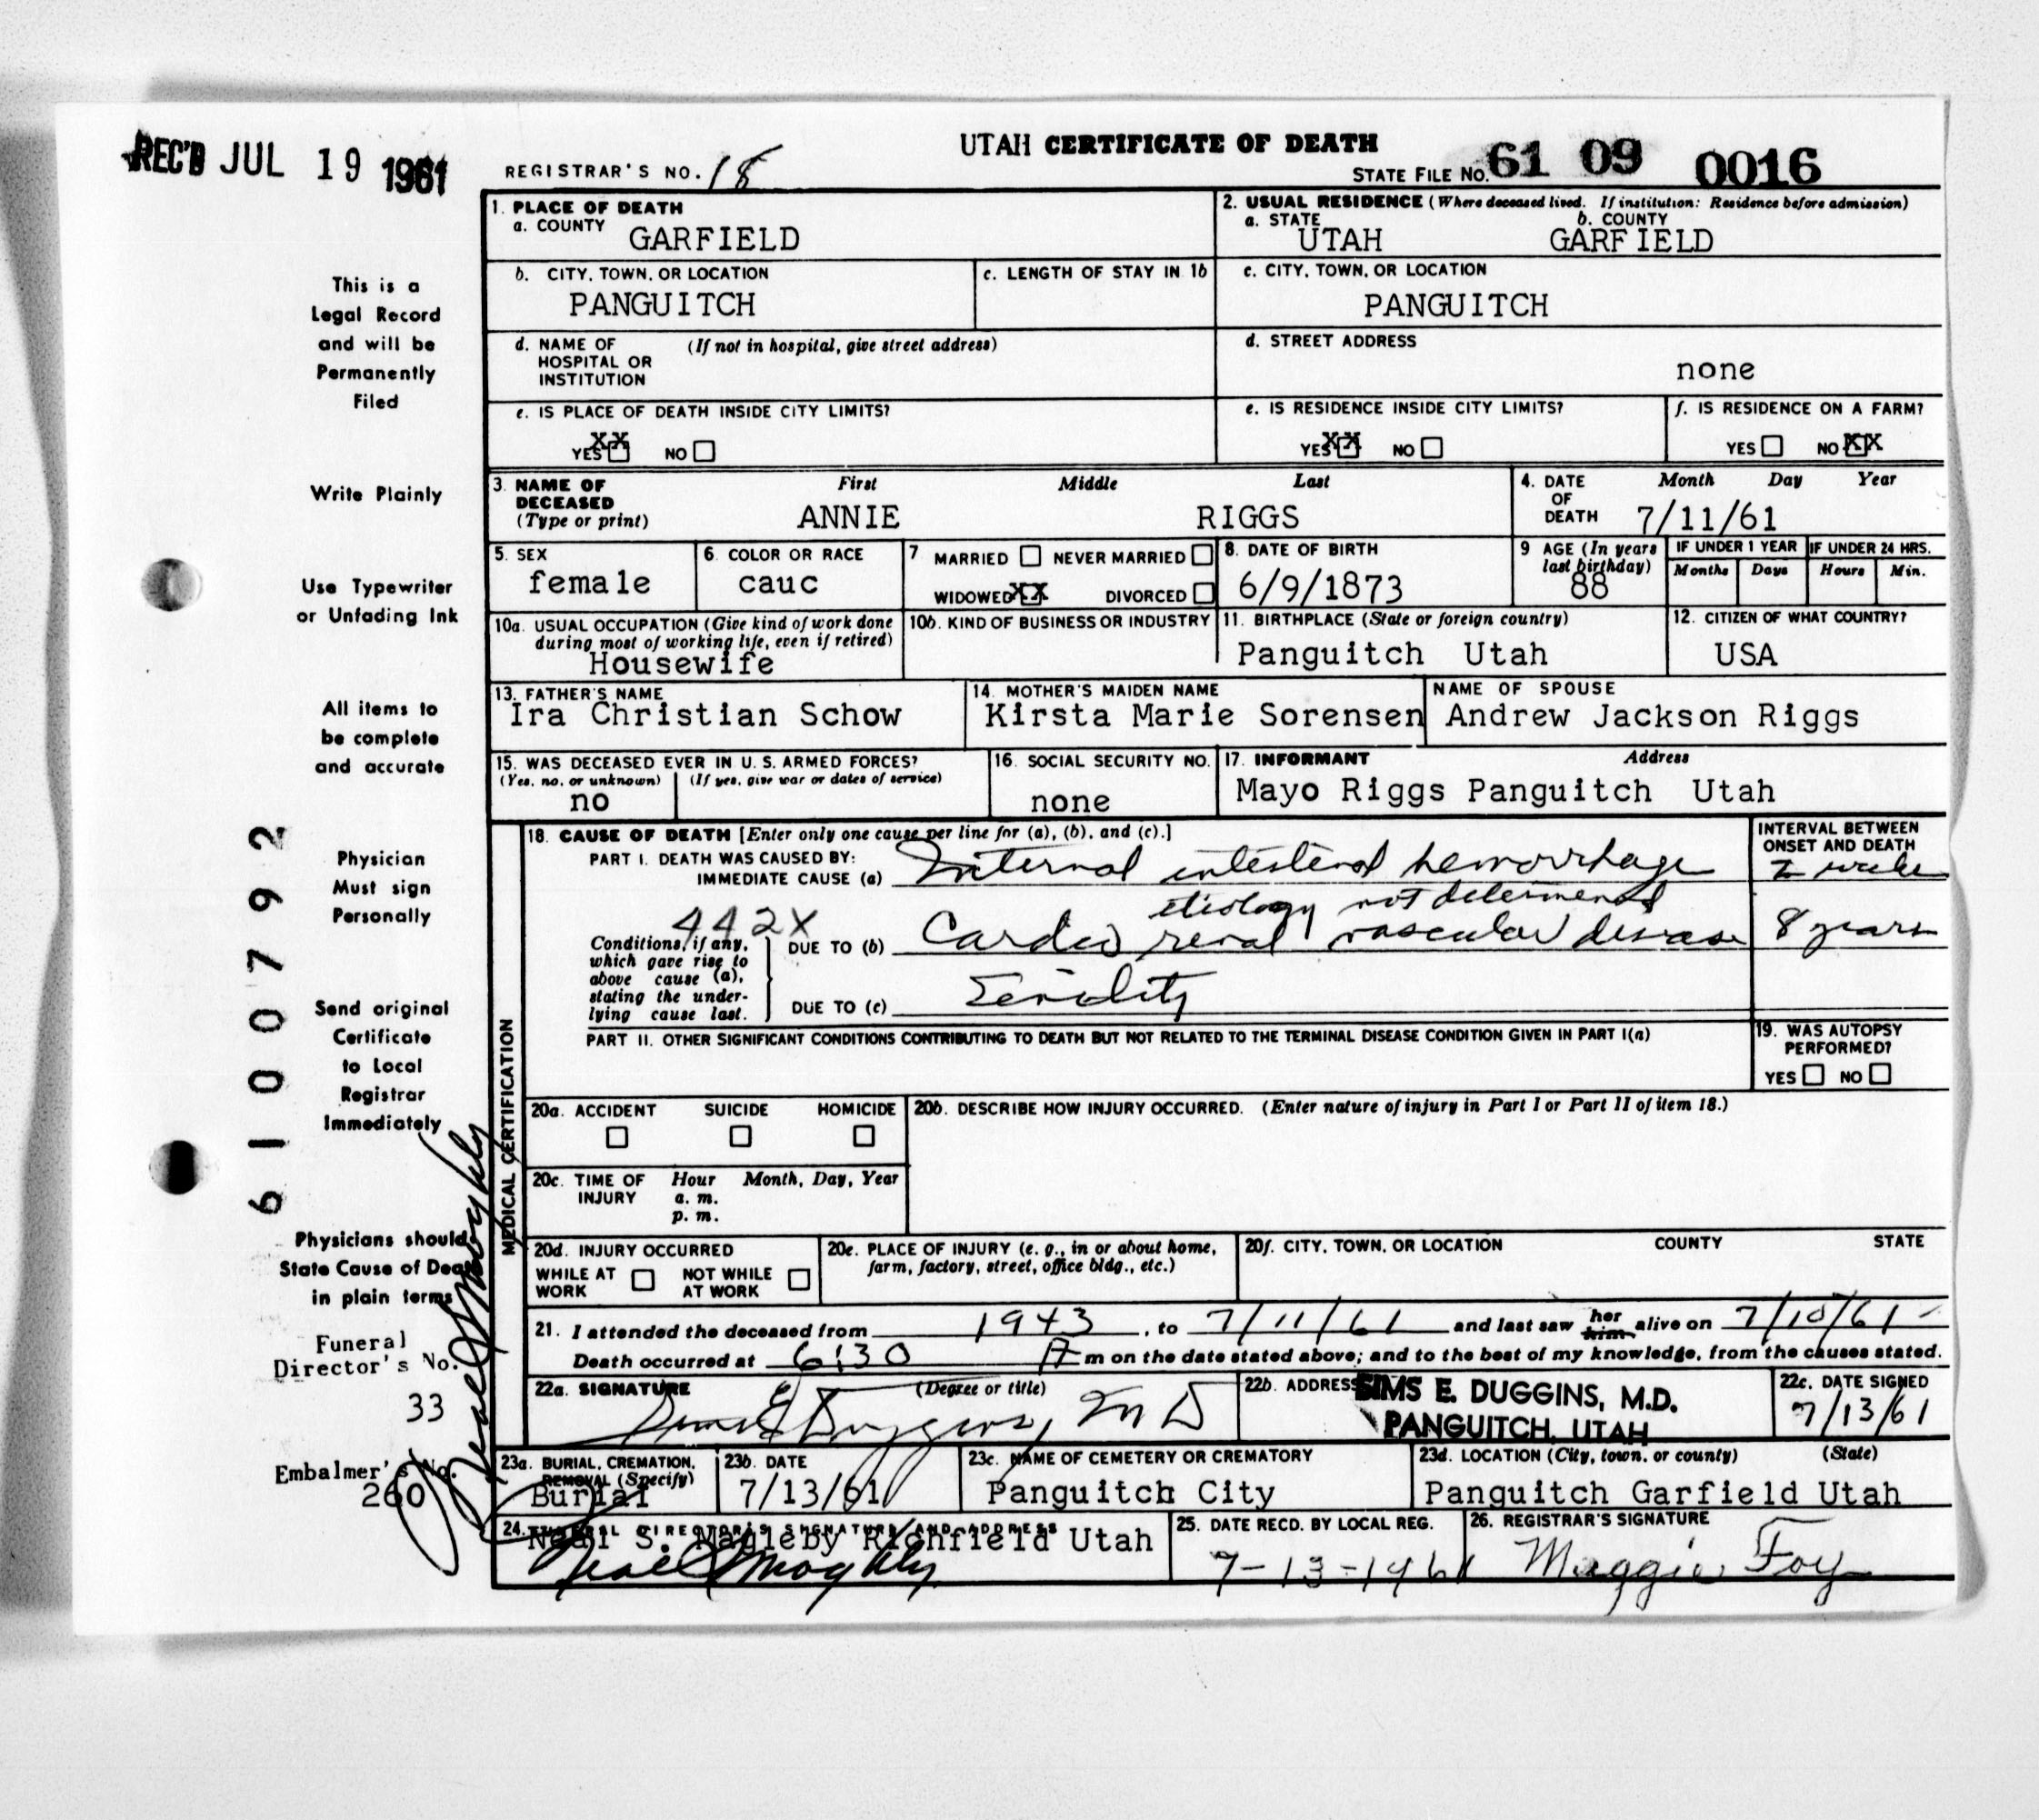 REC'D JUL 19 1961
UTAH CERTIFICATE OF DEATH
REGISTRAR'S NO. 18
STATE FILE NO. 61 09 0016
This is a
Legal Record
and will be
Permanently
Filed
Write Plainly
Use Typewriter
or Unfading Ink
All items to
be complete
and accurate
Physician
Must sign
Personally
Send original
Certificate
to Local
Registrar
Immediately
Physicians should
State Cause of Death
in plain terms
Funeral
Director's No.
33
Embalmer's No.
260
6100792
1. PLACE OF DEATH
a. COUNTY
GARFIELD
2. USUAL RESIDENCE (Where deceased lived. If institution: Residence before admission)
a. STATE b. COUNTY
UTAH GARFIELD
b. CITY, TOWN, OR LOCATION
PANGUITCH
c. LENGTH OF STAY IN 1b
c. CITY, TOWN, OR LOCATION
PANGUITCH
d. NAME OF (If not in hospital, give street address)
HOSPITAL OR
INSTITUTION
d. STREET ADDRESS
none
e. IS PLACE OF DEATH INSIDE CITY LIMITS?
YES XX NO
e. IS RESIDENCE INSIDE CITY LIMITS?
YES XX NO
f. IS RESIDENCE ON A FARM?
YES NO XX
3. NAME OF First Middle Last
DECEASED
(Type or print) ANNIE RIGGS
4. DATE Month Day Year
OF
DEATH 7/11/61
5. SEX
female
6. COLOR OR RACE
cauc
7 MARRIED NEVER MARRIED
WIDOWED XX DIVORCED
8. DATE OF BIRTH
6/9/1873
9 AGE (In years
last birthday)
88
IF UNDER 1 YEAR IF UNDER 24 HRS.
Months Days Hours Min.
10a. USUAL OCCUPATION (Give kind of work done
during most of working life, even if retired)
Housewife
10b. KIND OF BUSINESS OR INDUSTRY
11. BIRTHPLACE (State or foreign country)
Panguitch Utah
12. CITIZEN OF WHAT COUNTRY?
USA
13. FATHER'S NAME
Ira Christian Schow
14. MOTHER'S MAIDEN NAME
Kirsta Marie Sorensen
NAME OF SPOUSE
Andrew Jackson Riggs
15. WAS DECEASED EVER IN U. S. ARMED FORCES?
(Yes, no, or unknown) (If yes, give war or dates of service)
no
16. SOCIAL SECURITY NO.
none
17. INFORMANT Address
Mayo Riggs Panguitch Utah
MEDICAL CERTIFICATION
18. CAUSE OF DEATH [Enter only one cause per line for (a), (b), and (c).]
INTERVAL BETWEEN
ONSET AND DEATH
PART I. DEATH WAS CAUSED BY:
IMMEDIATE CAUSE (a) Internal intestinal hemorrhage
etiology not determined
442X
Conditions, if any,
which gave rise to
above cause (a),
stating the under-
lying cause last.
DUE TO (b) Cardio renal vascular disease 8 years
DUE TO (c) Senility
PART II. OTHER SIGNIFICANT CONDITIONS CONTRIBUTING TO DEATH BUT NOT RELATED TO THE TERMINAL DISEASE CONDITION GIVEN IN PART I(a)
19. WAS AUTOPSY
PERFORMED?
YES NO
20a. ACCIDENT SUICIDE HOMICIDE
20b. DESCRIBE HOW INJURY OCCURRED. (Enter nature of injury in Part I or Part II of item 18.)
20c. TIME OF Hour Month, Day, Year
INJURY a. m.
p. m.
20d. INJURY OCCURRED
WHILE AT NOT WHILE
WORK AT WORK
20e. PLACE OF INJURY (e. g., in or about home,
farm, factory, street, office bldg., etc.)
20f. CITY, TOWN, OR LOCATION COUNTY STATE
21. I attended the deceased from 1943, to 7/11/61 and last saw her him alive on 7/10/61
Death occurred at 6:30 A m on the date stated above; and to the best of my knowledge, from the causes stated.
22a. SIGNATURE (Degree or title)
Sims E Duggins, M D
22b. ADDRESS
SIMS E. DUGGINS, M.D.
PANGUITCH, UTAH
22c. DATE SIGNED
7/13/61
23a. BURIAL, CREMATION,
REMOVAL (Specify)
Burial
23b. DATE
7/13/61
23c. NAME OF CEMETERY OR CREMATORY
Panguitch City
23d. LOCATION (City, town, or county) (State)
Panguitch Garfield Utah
24. FUNERAL DIRECTOR'S SIGNATURE AND ADDRESS
Neal S. Magleby Richfield Utah
Neal S Magleby
25. DATE RECD. BY LOCAL REG.
7-13-1961
26. REGISTRAR'S SIGNATURE
Maggie Foy
Neal S Magleby